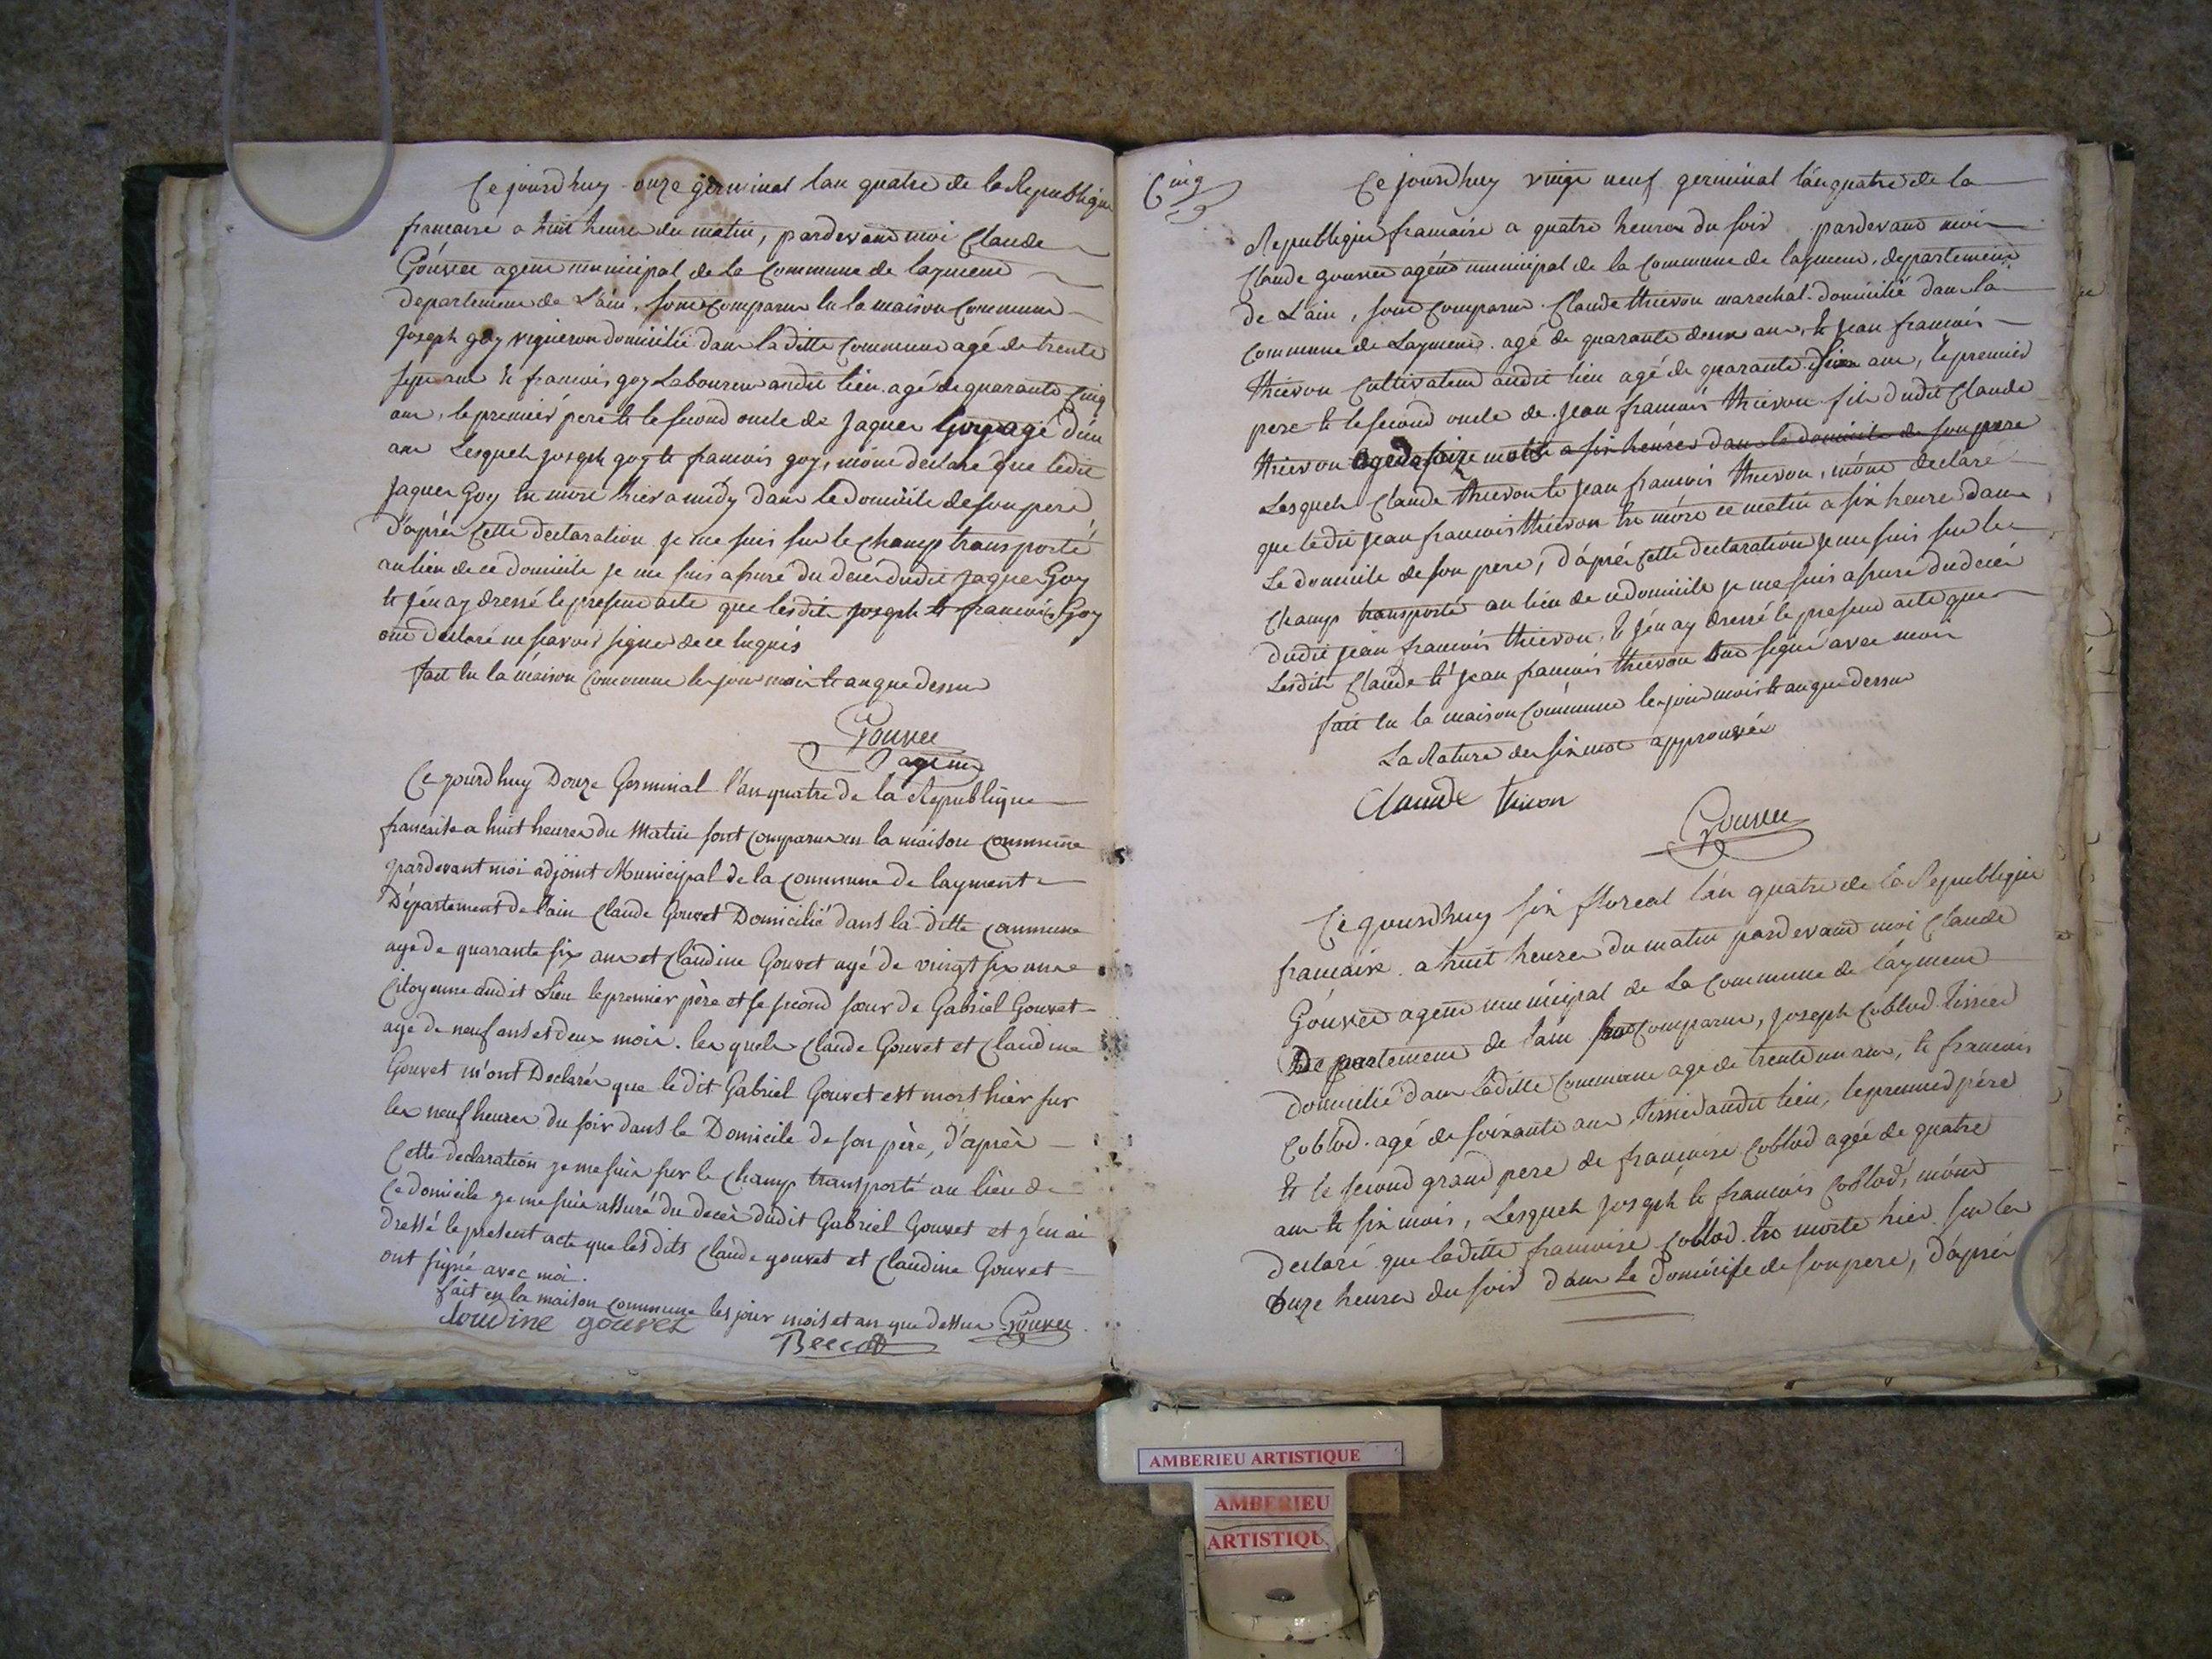 Ce jourdhuy onze germinal lan quatre de la Republique
francaise a huit heures du matin, pardevant moi Claude
Gouvet agent municipal de la Commune de layment
departement de L'ain, sont comparus en la maison Commune
joseph goy vigneron domicilié dans la ditte Commune agé de trente
sept ans et francois goy Laboureur audit lieu agé de quarante cinq
ans, le premier pere et le second oncle de Jaques Goy agé d'un
ans Lesquels joseph goy et francois goy, m'ont declaré que ledit
Jaques Goy est mort hier a midy dans le domicile de son pere
d'apres Cette declaration je me suis sur le Champ transporté
au lieu de ce domicile je me suis assuré du deces dudit Jaques Goy
et j'en ay dressé le present acte que lesdits joseph et francois Goy
ont declaré ne scavoir signer de ce enquis
fait en la maison Commune les jour mois et an que dessus
Gouvet
agent
Ce jourdhuy Douze Germinal l'an quatre de la Republique
francaise a huit heures du Matin sont comparus en la maison commune
pardevant moi adjoint Municipal de la commune de layment
Département de l'ain Claude Gouvet Domicilié dans la ditte commune
agé de quarante six ans et Claudine Gouvet agé de vingt six ans
Citoyenne audit Lieu le premier père et le second sœur de Gabriel Gouvet
agé de neuf ans et deux mois. lesquels Claude Gouvet et Claudine
Gouvet m'ont Declarés que ledit Gabriel Gouvet est mort hier sur
les neuf heures du soir dans le Domicile de son père, d'après
Cette declaration je me suis sur le champ transporté au lieu de
ce domicile je me suis assuré du decès dudit Gabriel Gouvet et j'en ai
dressé le present acte que les dits Claude gouvet et Claudine Gouvet
ont signé avec moi.
fait en la maison commune les jour mois et an que dessus Gouvet
gouvet
Cinq
Ce jourdhuy vingt neuf germinal l'an quatre de la
Republique francaise a quatre heures du soir pardevant moi
Claude gouvet agent municipal de la Commune de layment, departement
de L'ain, sont comparus Claude thievon marechal domicilié dans la
Commune de Layment agé de quarante deux ans, et jean francois
thievon Cultivateur audit lieu agé de quarante ans, le premier
pere et le second oncle de jean francois thievon fils dudit Claude
thievon agé de seize mois a six heures dans le domicile de son pere
Lesquels Claude thievon et jean francois thievon, m'ont declaré
que ledit jean francois thievon est mort ce matin a six heures dans
Le domicile de son pere, d'apres Cette declaration je me suis sur le
Champ transporté au lieu de ce domicile je me suis assuré du deces
dudit jean francois thievon, et j'en ay dressé le present acte que
Lesdits Claude et jean francois thievon ont signé avec moi
fait en la maison Commune les jour mois et an que dessus
La Rature des six mots approuvée
Claude
Gouvet
Ce jourdhuy six floreal l'an quatre de la Republique
francaise a huit heures du matin pardevant moi Claude
Gouvet agent municipal de La Commune de layment
Departement de l'ain sont comparus, joseph Coblod tissier
domicilié dans laditte Commune agé de trente un ans, et francois
Coblod agé de soixante ans, tissier audit lieu, le premier père
et le second grand pere de francoise Coblod agée de quatre
ans et six mois, Lesquels joseph et francois Coblod, m'ont
declaré que laditte francoise Coblod est morte hier sur les
onze heures du soir dans Le domicile de son pere, d'après
AMBERIEU ARTISTIQUE
AMBERIEU
ARTISTIQU